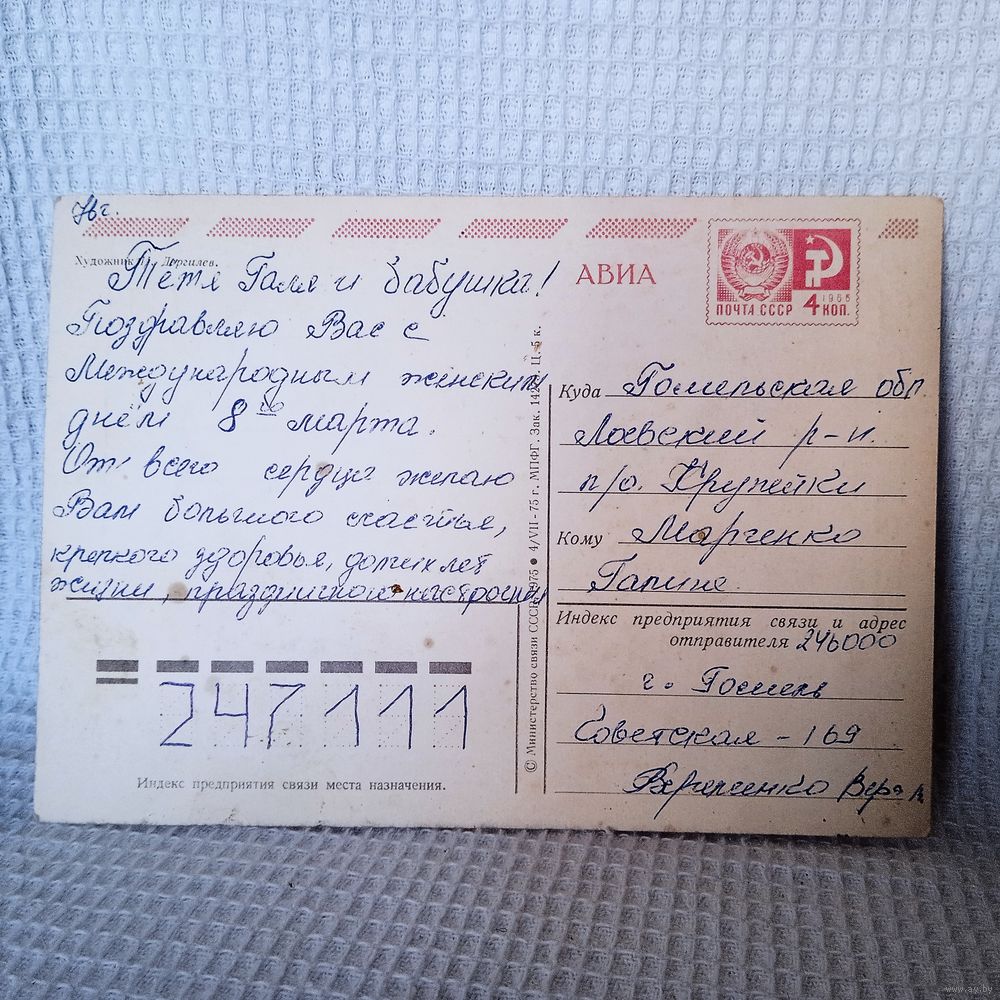 76 г.
Художник Дергилев.
Тётя Галя и бабушка!
Поздравляю Вас с
Международным женским
днём 8ю марта.
От всего сердца желаю
Вам большого счастья,
крепкого здоровья, долгих лет
жизни, праздничного настроения
247111
Индекс предприятия связи места назначения.
© Министерство связи СССР. 1975 ● 4/VII-75 г. МПФГ. Зак. Ц. 5 к.
АВИА
ПОЧТА СССР 4 КОП.
1966
Куда Гомельская обл.
Лоевский р-н.
п/о. Крупейки
Кому Марченко
Галине
Индекс предприятия связи и адрес
отправителя 246000
г. Гомель
Советская - 169
Вера
www.ay.by